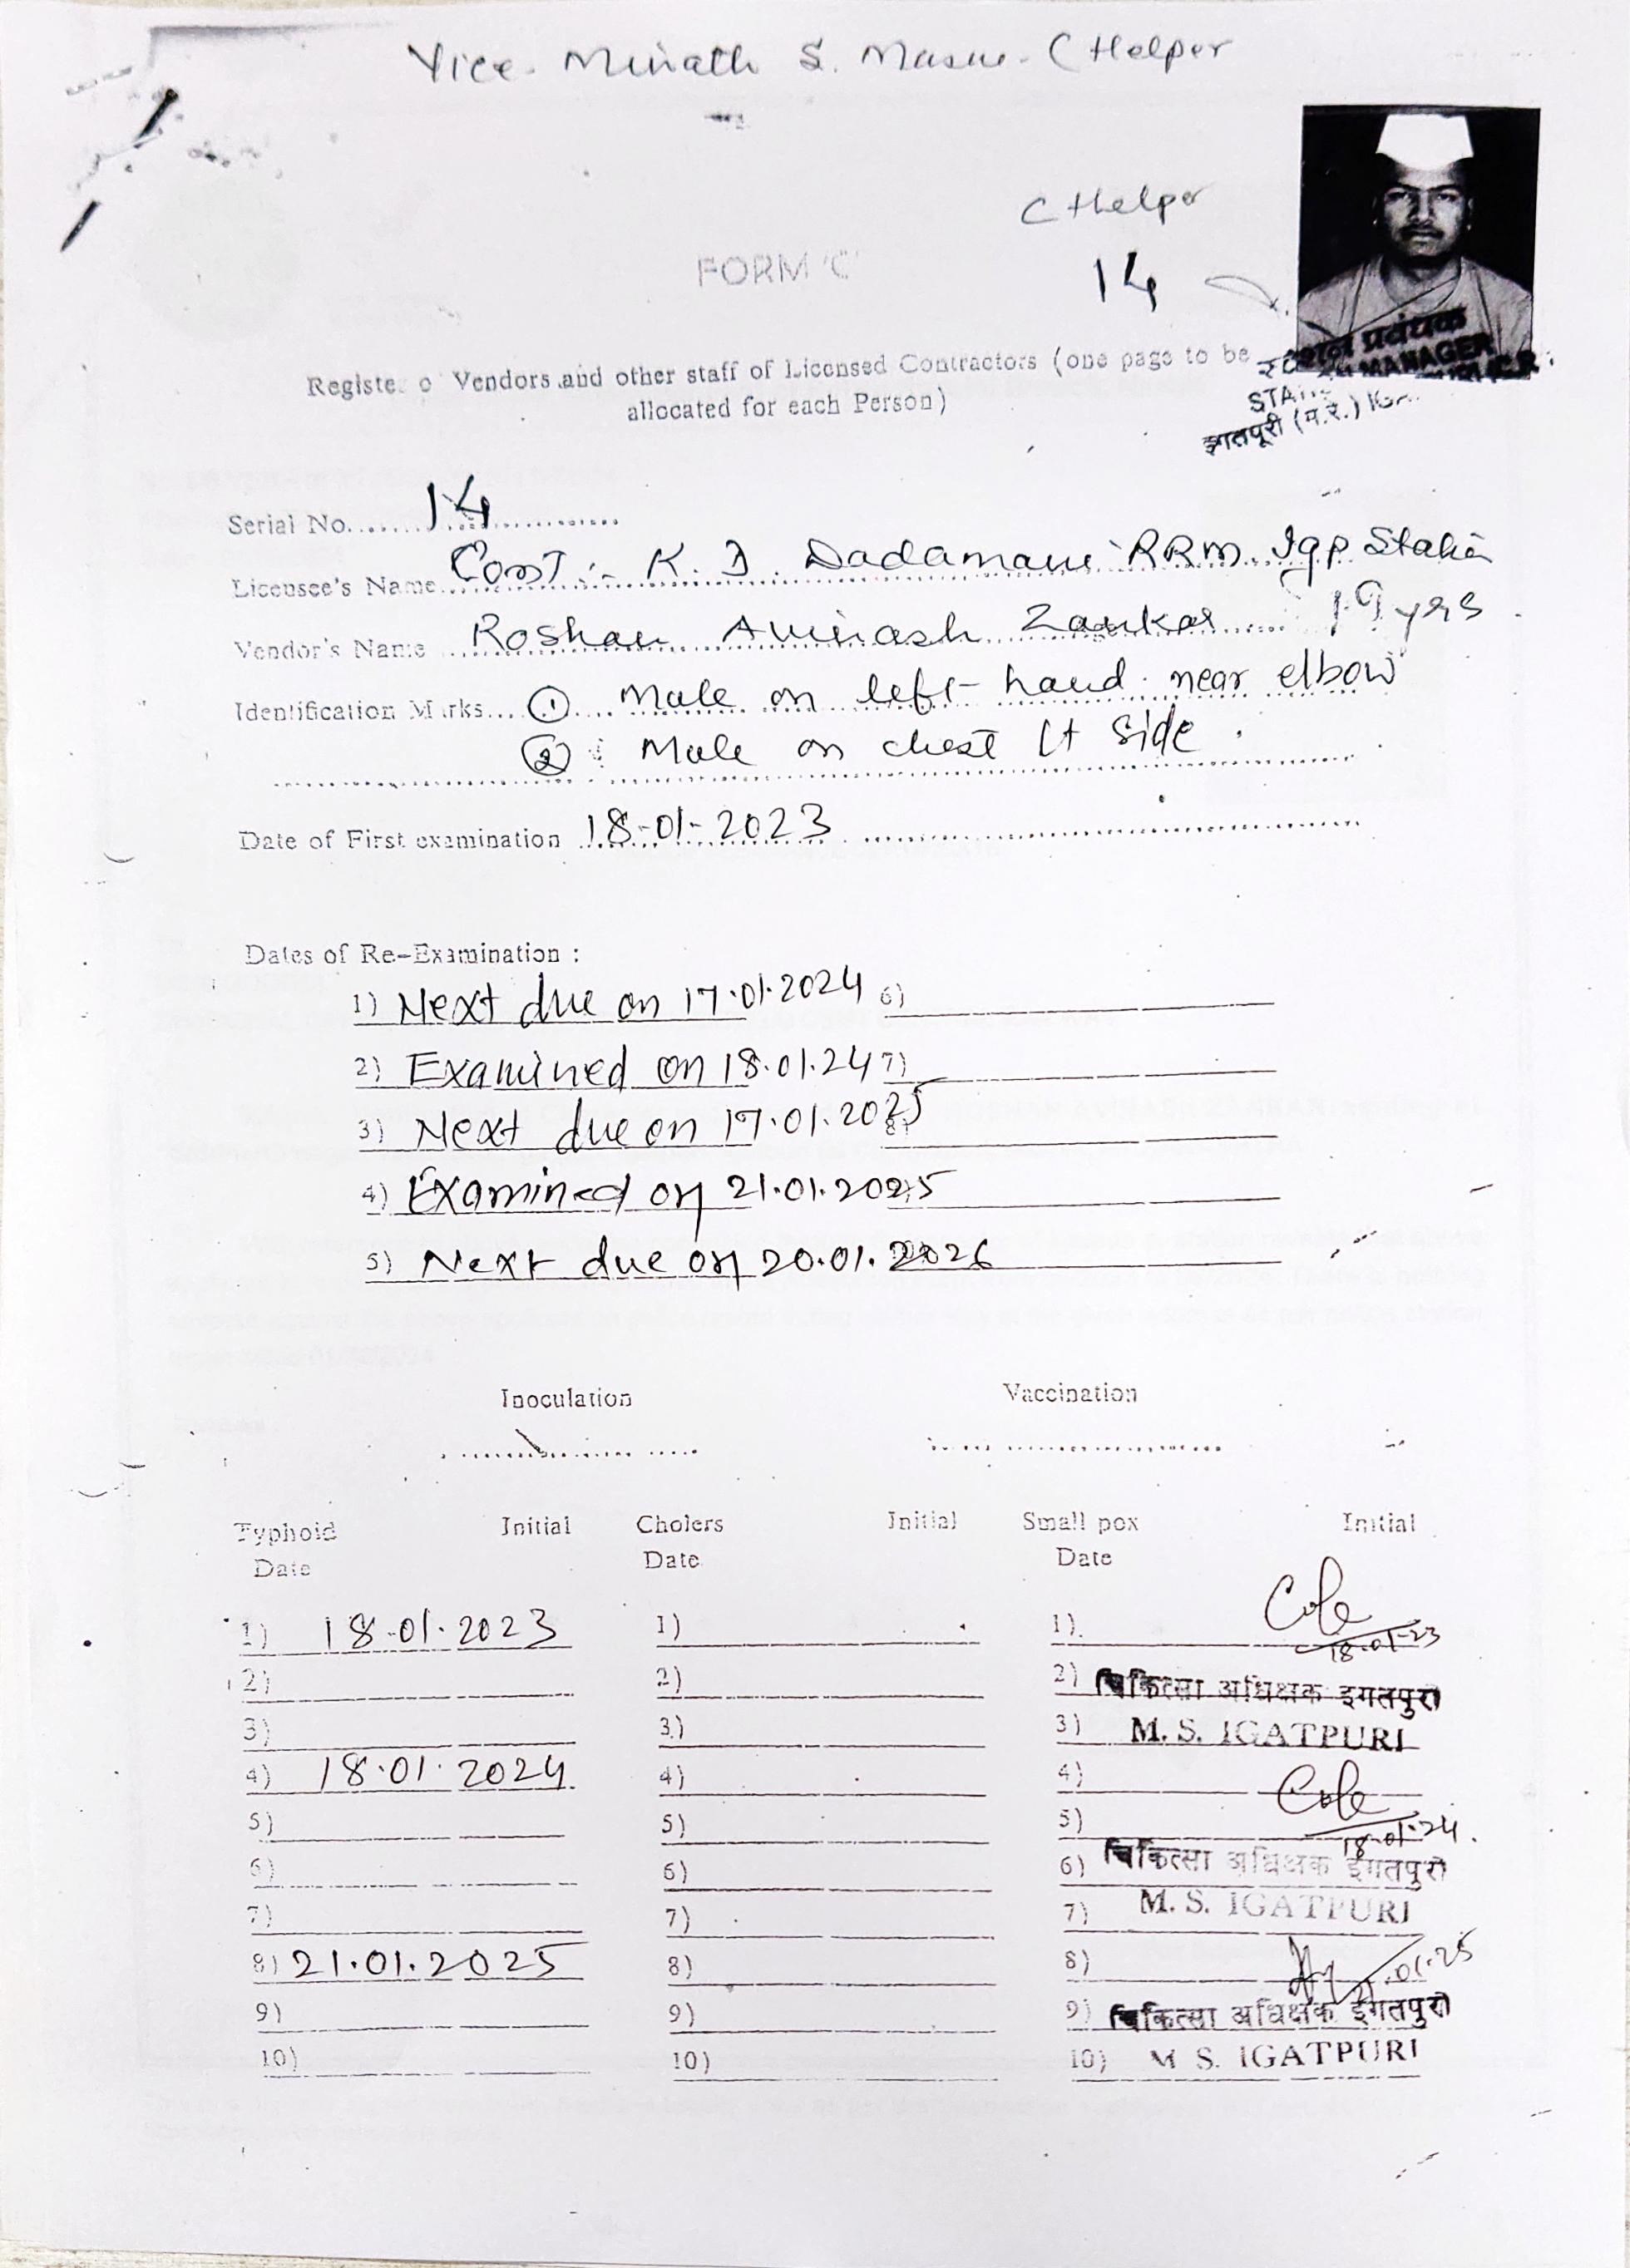 Vice. Minath S. Masne. C Helper
C Helper
FORM 'C'
14
स्टेशन प्रबंधक
STATION MANAGER
इगतपूरी (म.रे.)
Registe o Vendors and other staff of Licensed Contractors (one page to be
allocated for each Person)
Serial No. 14
Licensee's Name Cont :- K. D. Dadamani RRm. Igp. Station
Vendor's Name Roshan Avinash Zankar 19 yrs
Identification Marks ① Male on left hand near elbow
② Mole on chest Lt side.
Date of First examination 18-01-2023
Dates of Re-Examination :
1) Next due on 17.01.2024 6)
2) Examined on 18.01.24 7)
3) Next due on 17.01.2025 8)
4) Examined on 21.01.2025
5) Next due on 20.01.2026
Inoculation Vaccination
Typhoid Initial Cholers Initial Small pox Initial
Date Date Date
1) 18-01-2023 1) 1)
18-01-23
2) 2) 2) चिकित्सा अधिक्षक इगतपुरी
3) 3) 3) M. S. IGATPURI
4) 18.01.2024 4) 4)
5) 5) 5) 18-01-24.
6) 6) 6) चिकित्सा अधिक्षक इगतपुरी
7) 7) 7) M. S. IGATPURI
8) 21.01.2025 8) 8) 21.01.25
9) 9) 9) चिकित्सा अधिक्षक इगतपुरी
10) 10) 10) M S. IGATPURI